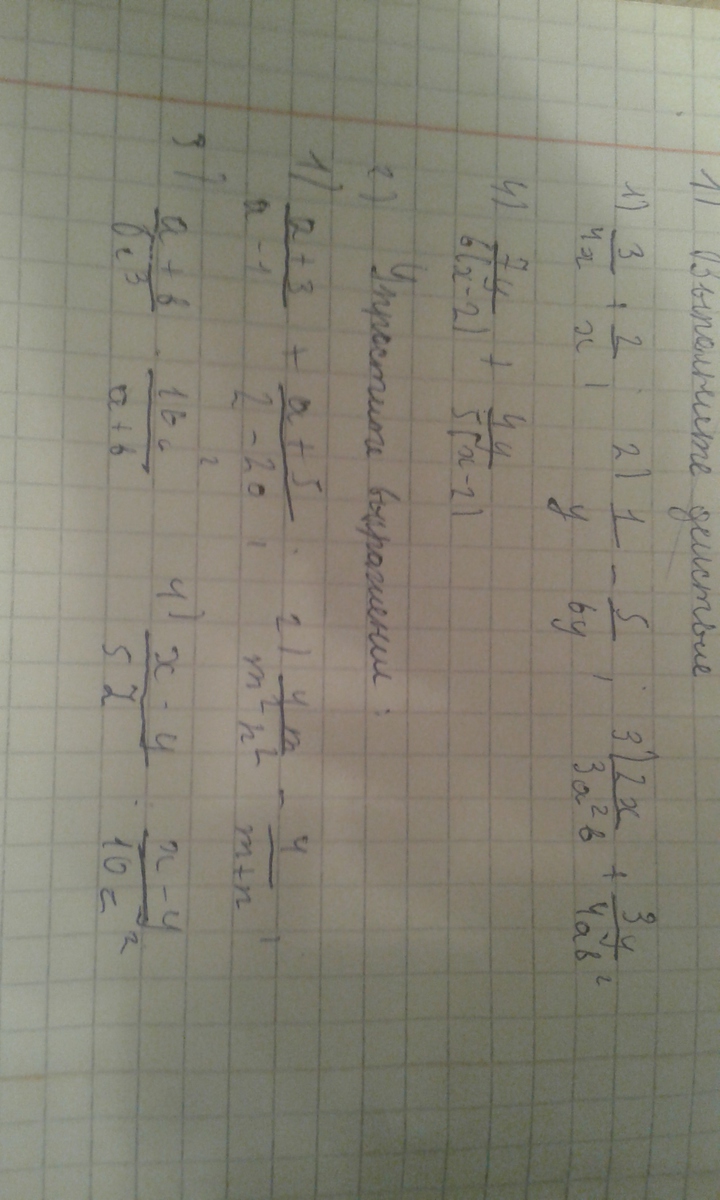 1) Выполните действие
1) 3/4x + 2/x ; 2) 1/y - 5/6y ; 3) 2x/3a²b + 3y/4ab²
4) 7y/6(x-2) + 4y/5(x-2)
2) Упростите выражения:
1) a+3/a-1 + a+5/2-2a ; 2) 4m/m²-n² - 4/m+n ,
3) a+b/8c³ · 16c²/a+b 4) x-4/5z : x-4/10z²